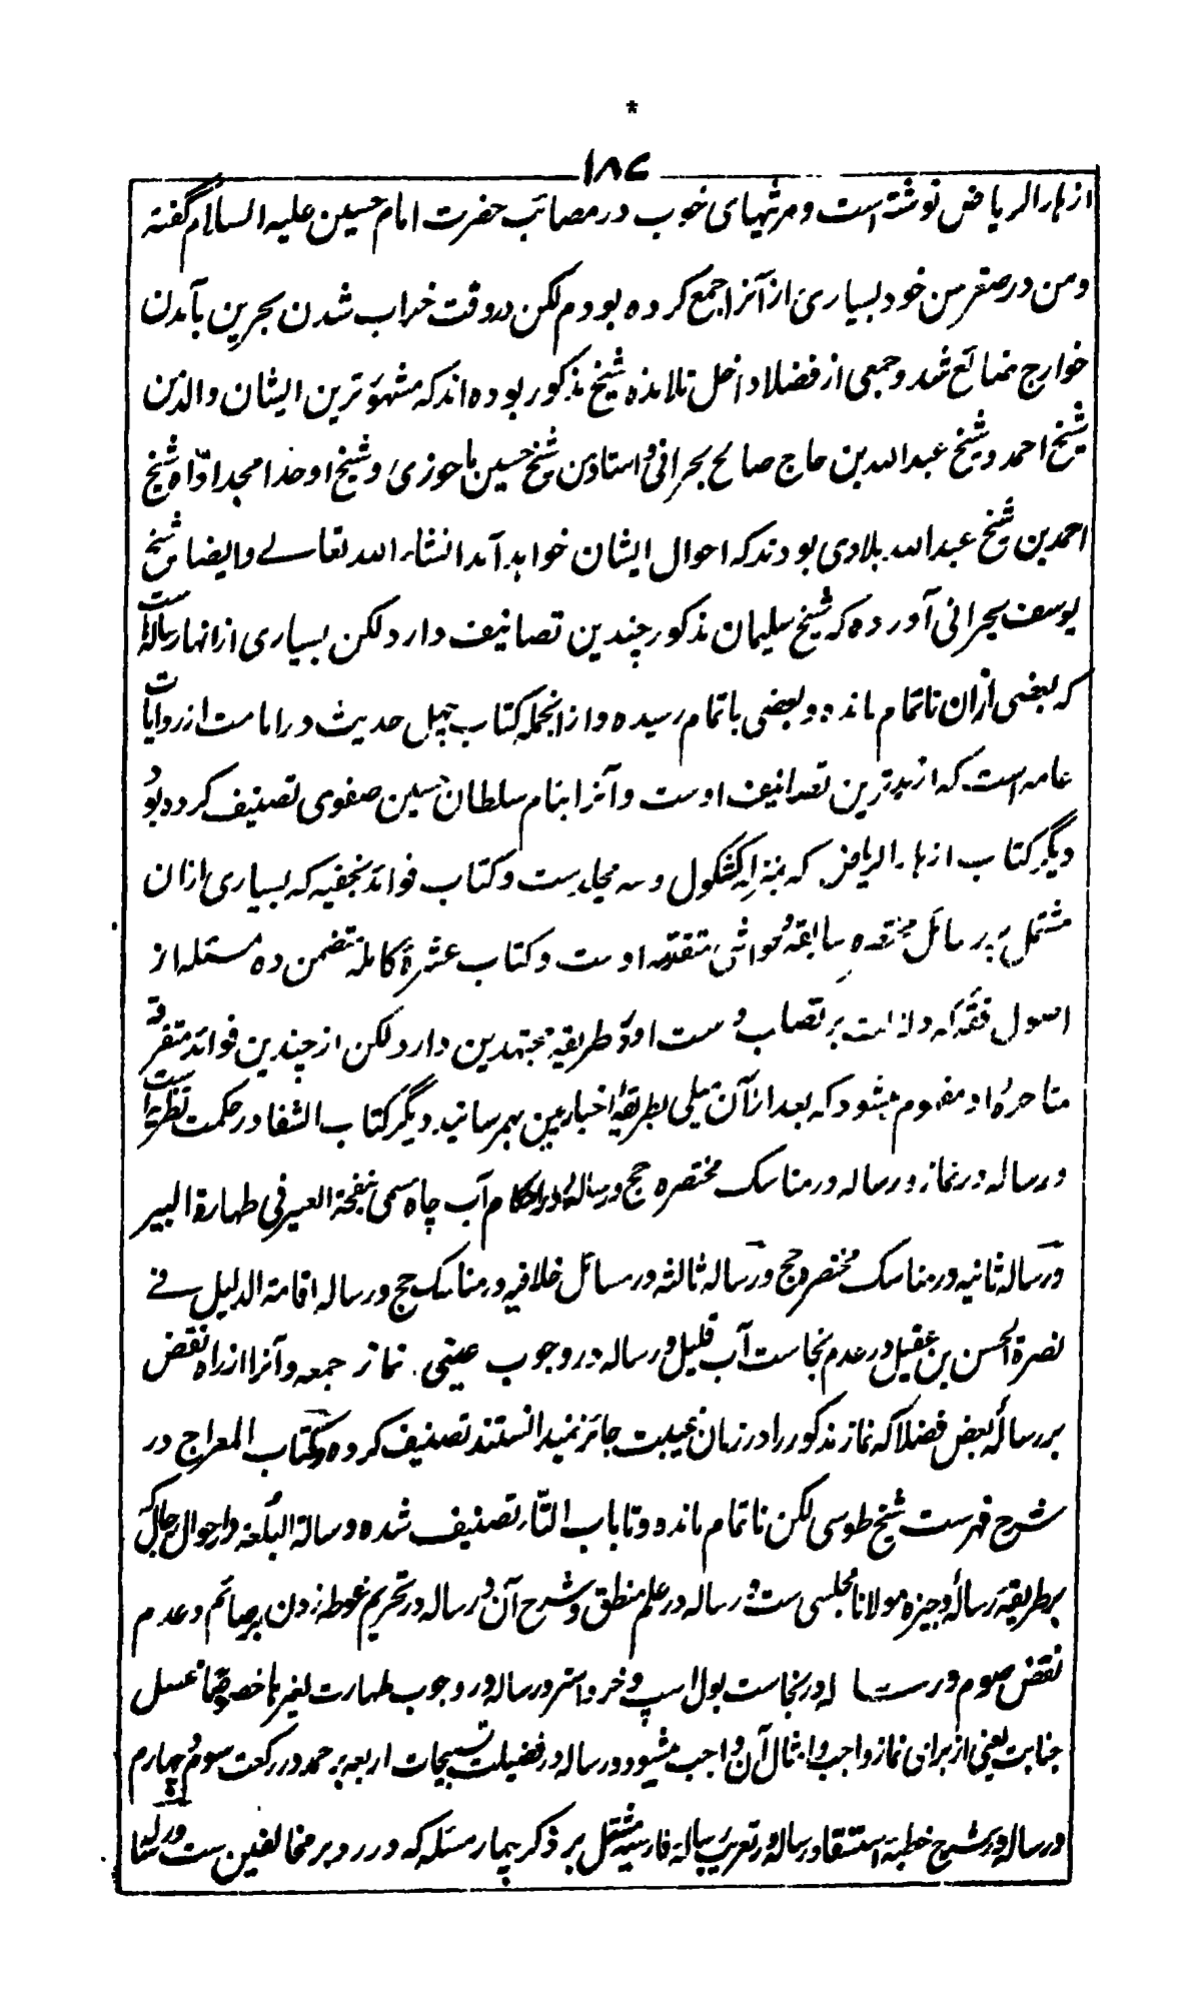 *
۱۸۷
ازهار الریاض نوشته است و مرثیهای خوب در مصائب حضرت امام حسین علیه السلام گفته
و من در صغر سن خود بسیاری از آنرا جمع کرده بودم لکن در وقت خراب شدن بحرین بآمدن
خوارج ضائع شد و جمعی از فضلا داخل تلامذه شیخ مذکور بوده اند که مشهور ترین ایشان والد من
شیخ احمد و شیخ عبد الله بن حاج صالح بحرانی و استاد من شیخ حسین ماحوزی و شیخ اوحد امجد اواه شیخ
احمد بن شیخ عبد الله بلادی بودند که احوال ایشان خواهد آمد انشاء الله تعالے و ایضا شیخ
یوسف بحرانی آورده که شیخ سلیمان مذکور چندین تصانیف دارد لکن بسیاری از انها رسالهاست
که بعضی ازان ناتمام مانده و بعضی باتمام رسیده و ازانجمله کتاب چهل حدیث در امامت از روایات
عامه است که از تصانیف اوست و آنرا بنام سلطان حسین صفوی تصنیف کرده بود
دیگر کتاب ازهار الریاض که بمنزله کشکول و سه مجلد ست و کتاب فوائد نجفیه که بسیاری ازان
مشتمل بر رسائل مختصره سابقه و حواشی متقدمه اوست و کتاب عشرهٔ کامله متضمن ده مسئله از
اصول فقه که دلالت بر تصلب اوست او در طریقه مجتهدین دارد لکن از چندین فوائد متفرقه
متاخرهٔ او مفهوم میشود که بعد ازان میلی بطریقهٔ اخباریین بهم رسانید دیگر کتاب الشفا در حکمت نظریه است
و رساله در نماز و رساله در مناسک مختصره حج و رساله در احکام آب چاه مسمی بنفحة العبیر فی طهارة البیر
و رساله ثانیه در مناسک مختصر حج و رساله ثالثه در مسائل خلافیه در مناسک حج و رساله اقامة الدلیل فے
نصرة الحسن بن عقیل در عدم نجاست آب قلیل و رساله در وجوب عینی نماز جمعه و آنرا از راه نقض
بر رسالهٔ بعض فضلا که نماز مذکور را در زمان غیبت جائز نمیدانستند تصنیف کرده و کتاب المعراج در
شرح فهرست شیخ طوسی لکن ناتمام مانده و تا باب التاء تصنیف شده و رسالة البلغه در احوال رجال که
بر طریقه رسالهٔ وجیزه مولانا مجلسی ست و رساله در علم منطق و شرح آن و رساله در تحریم غوطه زدن بر صائم و عدم
نقض صوم و رساله در نجاست بول اسپ و خر و استر و رساله در وجوب طهارت لغیرها خصوصا غسل
جنابت یعنی از برای نماز واجب و امثال آن واجب میشود و رساله در فضیلت تسبیحات اربعه بر حمد در رکعت سوم و چهارم
و رساله در شرح خطبه استسقا و رساله در تعریب رساله فارسیه مشتمل بر ذکر چهار مسئله که در رد بر مخالفین ست و رساله